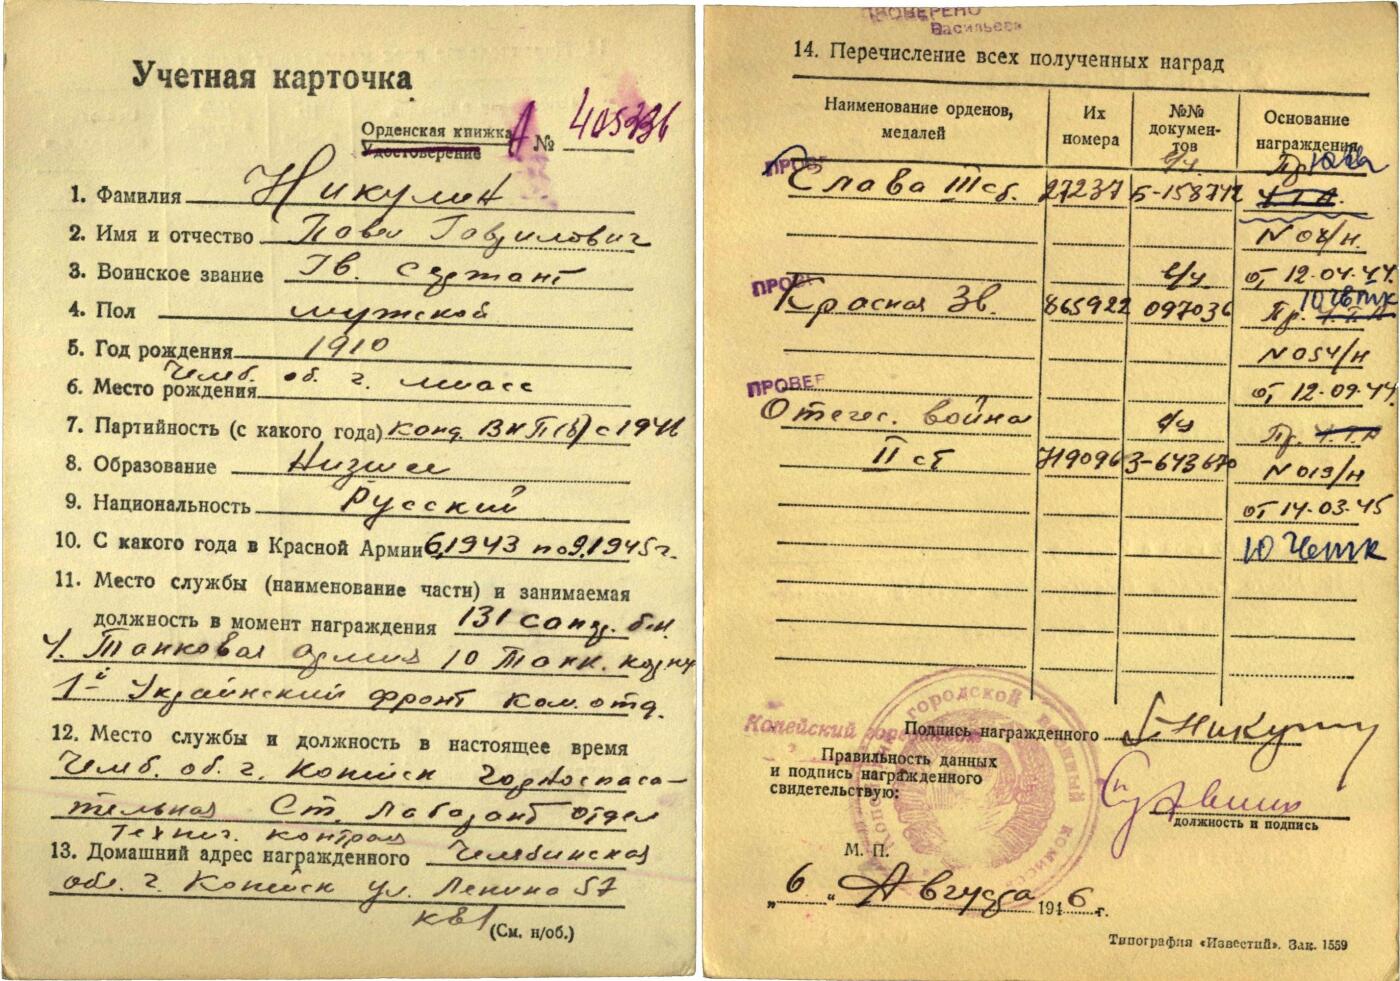 Учетная карточка
Орденская книжка А № 405336
Удостоверение
1. Фамилия Никулин
2. Имя и отчество Павел Гаврилович
3. Воинское звание Гв. сержант
4. Пол мужской
5. Год рождения 1910
6. Место рождения Челяб. об. г. Миасс
7. Партийность (с какого года) канд. ВКП(б) с 1946
8. Образование Низшее
9. Национальность Русский
10. С какого года в Красной Армии 6.1943 по 9.1945 г.
11. Место службы (наименование части) и занимаемая
должность в момент награждения 131 сапер. б-н.
4. Танковая армия 10 Танк. корпус
1й Украинский фронт Ком. отд.
12. Место службы и должность в настоящее время
Челяб. об. г. Копейск Горноспаса-
тельная Ст. Лаборант отдел
технич. контроля
13. Домашний адрес награжденного Челябинская
обл. г. Копейск ул. Ленина 57
кв 1
(См. н/об.)
ПРОВЕРЕНО
Васильева
14. Перечисление всех полученных наград
Наименование орденов, медалей
Их номера
№№ документов
Основание награждения
ПРОВЕР
б/у. Пр.
Слава III ст. 27237 Б-158712
N 04/н.
б/у от 12.04.44.
ПРОВЕР
10 гв тк
Красная Зв. 865922 097036 Пр.
N 054/н
от 12.09.44.
ПРОВЕР
Отечес. война б/у Пр.
II ст 719096 З-643670 N 019/н
от 14.03.45
10 гв тк
Копейский городской
Подпись награжденного П. Никулин
Правильность данных
и подпись награжденного
свидетельствую:
должность и подпись
М. П.
„6" Августа 1946 г.
Типография «Известий». Зак. 1559